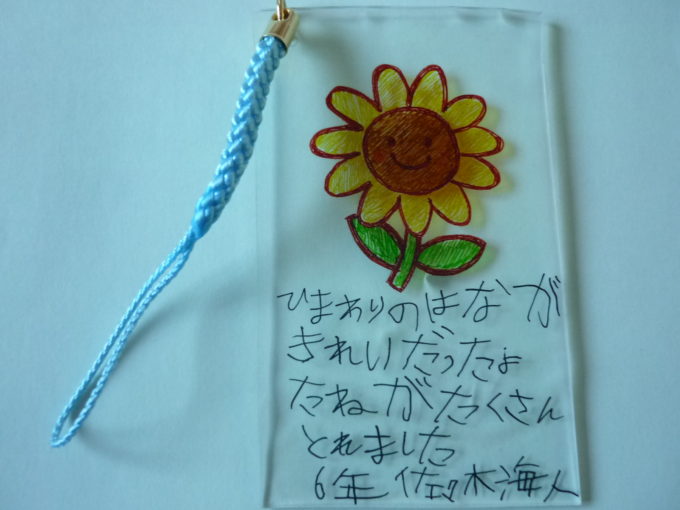 ひまわりのはなが
きれいだったよ
たねがたくさん
とれました
6年 佐々木海人